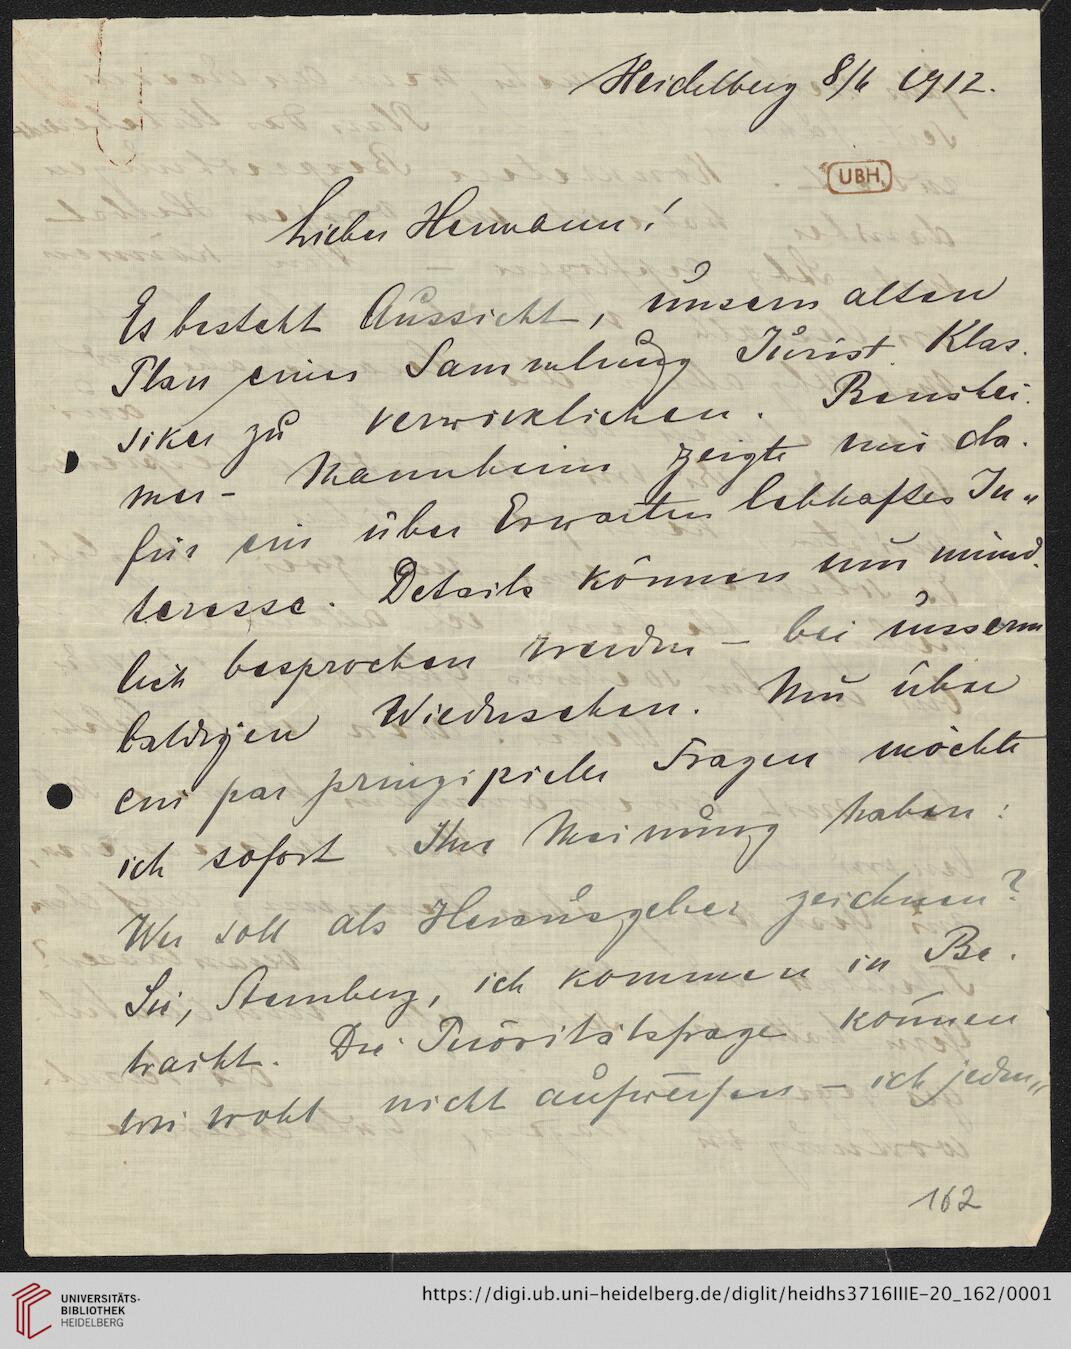 Heidelberg 8/6 1912.
UBH
Lieber Hermann!
Es besteht Aussicht, unsern alten
Plan einer Sammlung Jurist. Klas-
siker zu verwirklichen. Bensheimer-
mer- Mannheim zeigte mir da-
für ein über Erwarten lebhaftes In-
teresse. Details können nun münd-
lich besprochen werden – bei unserm
baldigen Wiedersehen. Nur über
ein par prinzipielle Fragen möchte
ich sofort Ihre Meinung haben:
Wer soll als Herausgeber zeichnen?
Sie, Sternberg, ich kommen in Be-
tracht. Die Prioritätsfrage können
wir wohl nicht aufwerfen – ich jeden-
162
UNIVERSITÄTS-
BIBLIOTHEK
HEIDELBERG
https://digi.ub.uni-heidelberg.de/diglit/heidhs3716IIIE-20_162/0001